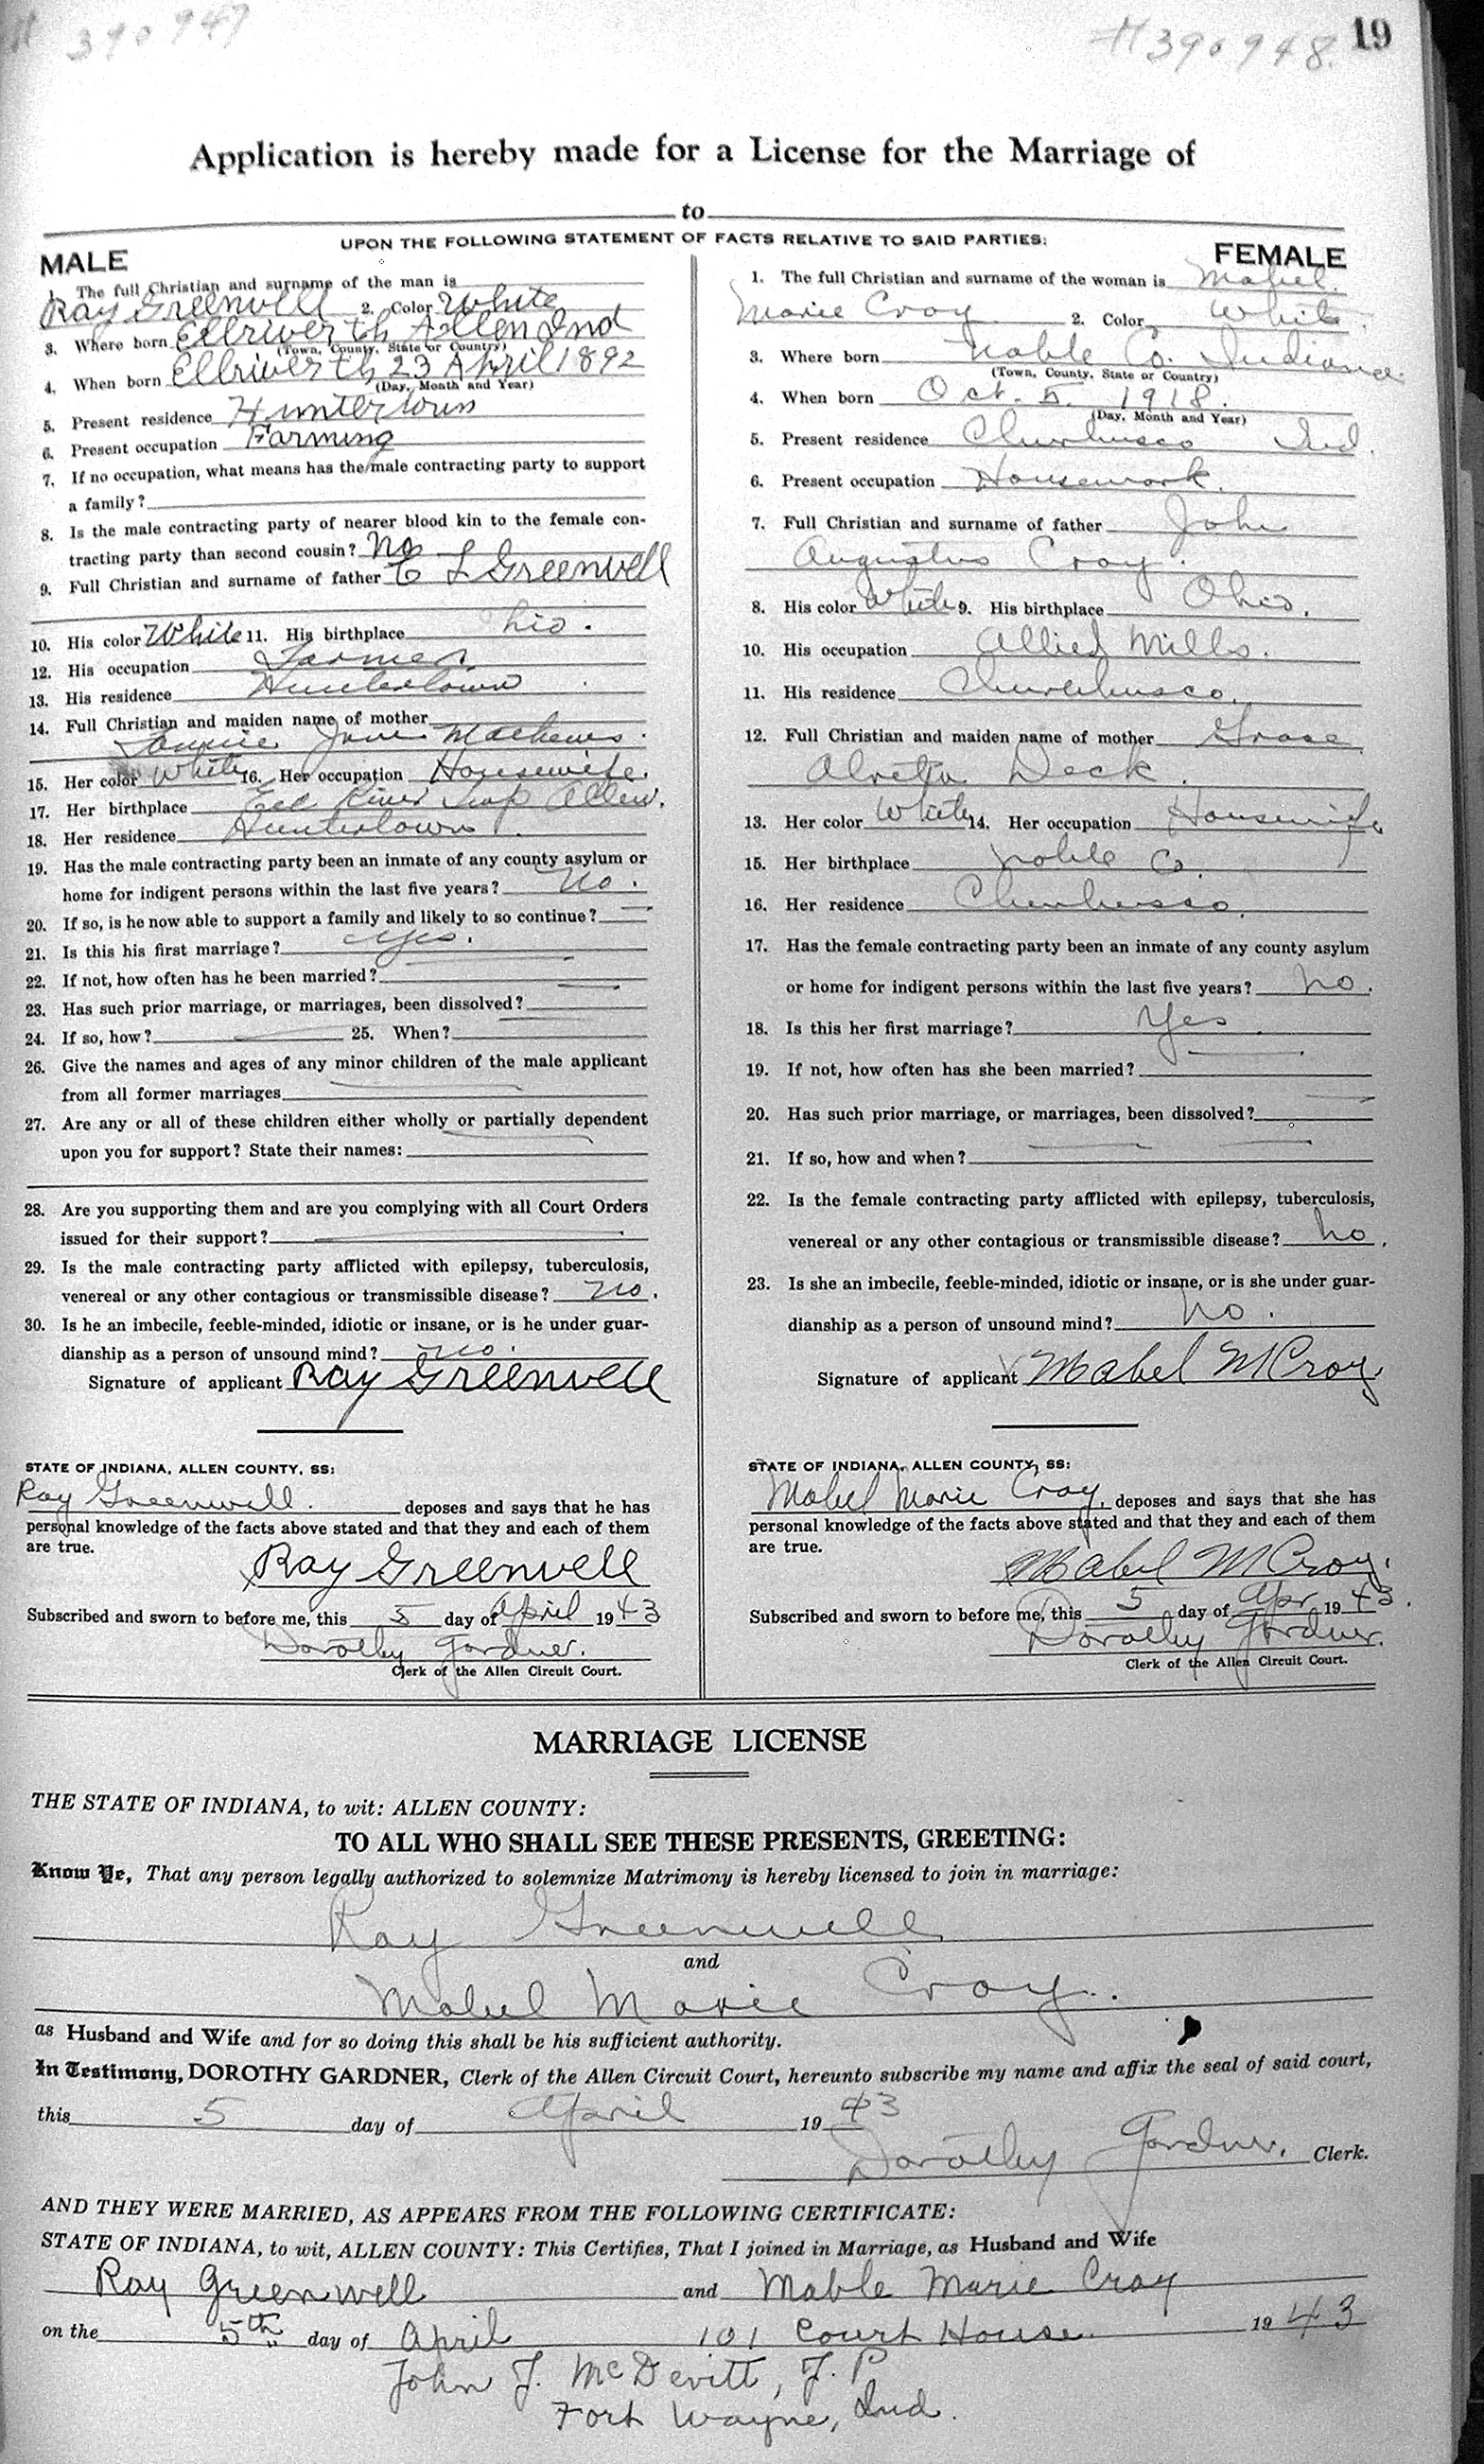 390947
#390948. 19
Application is hereby made for a License for the Marriage of
to
UPON THE FOLLOWING STATEMENT OF FACTS RELATIVE TO SAID PARTIES:
MALE
1. The full Christian and surname of the man is
Ray Greenwell 2. Color White
3. Where born Ellriver th Allen Ind
(Town, County, State or Country)
4. When born Ellriver th 23 April 1892
(Day, Month and Year)
5. Present residence Huntertown
6. Present occupation Farming
7. If no occupation, what means has the male contracting party to support
a family?
8. Is the male contracting party of nearer blood kin to the female con-
tracting party than second cousin? No
9. Full Christian and surname of father C L Greenwell
10. His color White 11. His birthplace Ohio.
12. His occupation Farmer
13. His residence Huntertown
14. Full Christian and maiden name of mother
Jane Mathews.
15. Her color White 16. Her occupation Housewife.
17. Her birthplace Eel River Twp Allen.
18. Her residence Huntertown.
19. Has the male contracting party been an inmate of any county asylum or
home for indigent persons within the last five years? No.
20. If so, is he now able to support a family and likely to so continue?
21. Is this his first marriage? yes.
22. If not, how often has he been married?
23. Has such prior marriage, or marriages, been dissolved?
24. If so, how? 25. When?
26. Give the names and ages of any minor children of the male applicant
from all former marriages
27. Are any or all of these children either wholly or partially dependent
upon you for support? State their names:
28. Are you supporting them and are you complying with all Court Orders
issued for their support?
29. Is the male contracting party afflicted with epilepsy, tuberculosis,
venereal or any other contagious or transmissible disease? no.
30. Is he an imbecile, feeble-minded, idiotic or insane, or is he under guar-
dianship as a person of unsound mind? no.
Signature of applicant Ray Greenwell
STATE OF INDIANA, ALLEN COUNTY, SS:
Ray Greenwell. deposes and says that he has
personal knowledge of the facts above stated and that they and each of them
are true.
x Ray Greenwell
Subscribed and sworn to before me, this 5 day of April 1943
Dorothy Gardner.
Clerk of the Allen Circuit Court.
FEMALE
1. The full Christian and surname of the woman is Mabel
Marie Croy 2. Color White.
3. Where born Noble Co. Indiana.
(Town, County, State or Country)
4. When born Oct. 5. 1918.
(Day, Month and Year)
5. Present residence Churubusco Ind.
6. Present occupation Housework.
7. Full Christian and surname of father John
Augustus Croy.
8. His color White 9. His birthplace Ohio.
10. His occupation Allied Mills.
11. His residence Churubusco.
12. Full Christian and maiden name of mother Grace
Alretta Deck.
13. Her color White 14. Her occupation Housewife
15. Her birthplace Noble Co.
16. Her residence Churubusco.
17. Has the female contracting party been an inmate of any county asylum
or home for indigent persons within the last five years? no.
18. Is this her first marriage? Yes.
19. If not, how often has she been married?
20. Has such prior marriage, or marriages, been dissolved?
21. If so, how and when?
22. Is the female contracting party afflicted with epilepsy, tuberculosis,
venereal or any other contagious or transmissible disease? no.
23. Is she an imbecile, feeble-minded, idiotic or insane, or is she under guar-
dianship as a person of unsound mind? no.
Signature of applicant x Mabel M Croy
STATE OF INDIANA, ALLEN COUNTY, SS:
Mabel Marie Croy, deposes and says that she has
personal knowledge of the facts above stated and that they and each of them
are true.
x Mabel M Croy.
Subscribed and sworn to before me, this 5 day of Apr 1943.
Dorothy Gardner.
Clerk of the Allen Circuit Court.
MARRIAGE LICENSE
THE STATE OF INDIANA, to wit: ALLEN COUNTY:
TO ALL WHO SHALL SEE THESE PRESENTS, GREETING:
Know Ye, That any person legally authorized to solemnize Matrimony is hereby licensed to join in marriage:
Ray Greenwell
and
Mabel Marie Croy.
as Husband and Wife and for so doing this shall be his sufficient authority.
In Testimony, DOROTHY GARDNER, Clerk of the Allen Circuit Court, hereunto subscribe my name and affix the seal of said court,
this 5 day of April 1943
Dorothy Gardner. Clerk.
AND THEY WERE MARRIED, AS APPEARS FROM THE FOLLOWING CERTIFICATE:
STATE OF INDIANA, to wit, ALLEN COUNTY: This Certifies, That I joined in Marriage, as Husband and Wife
Ray Greenwell and Mable Marie Croy
on the 5th day of April 101 Court House. 1943
John J. McDevitt, J. P.
Fort Wayne, Ind.